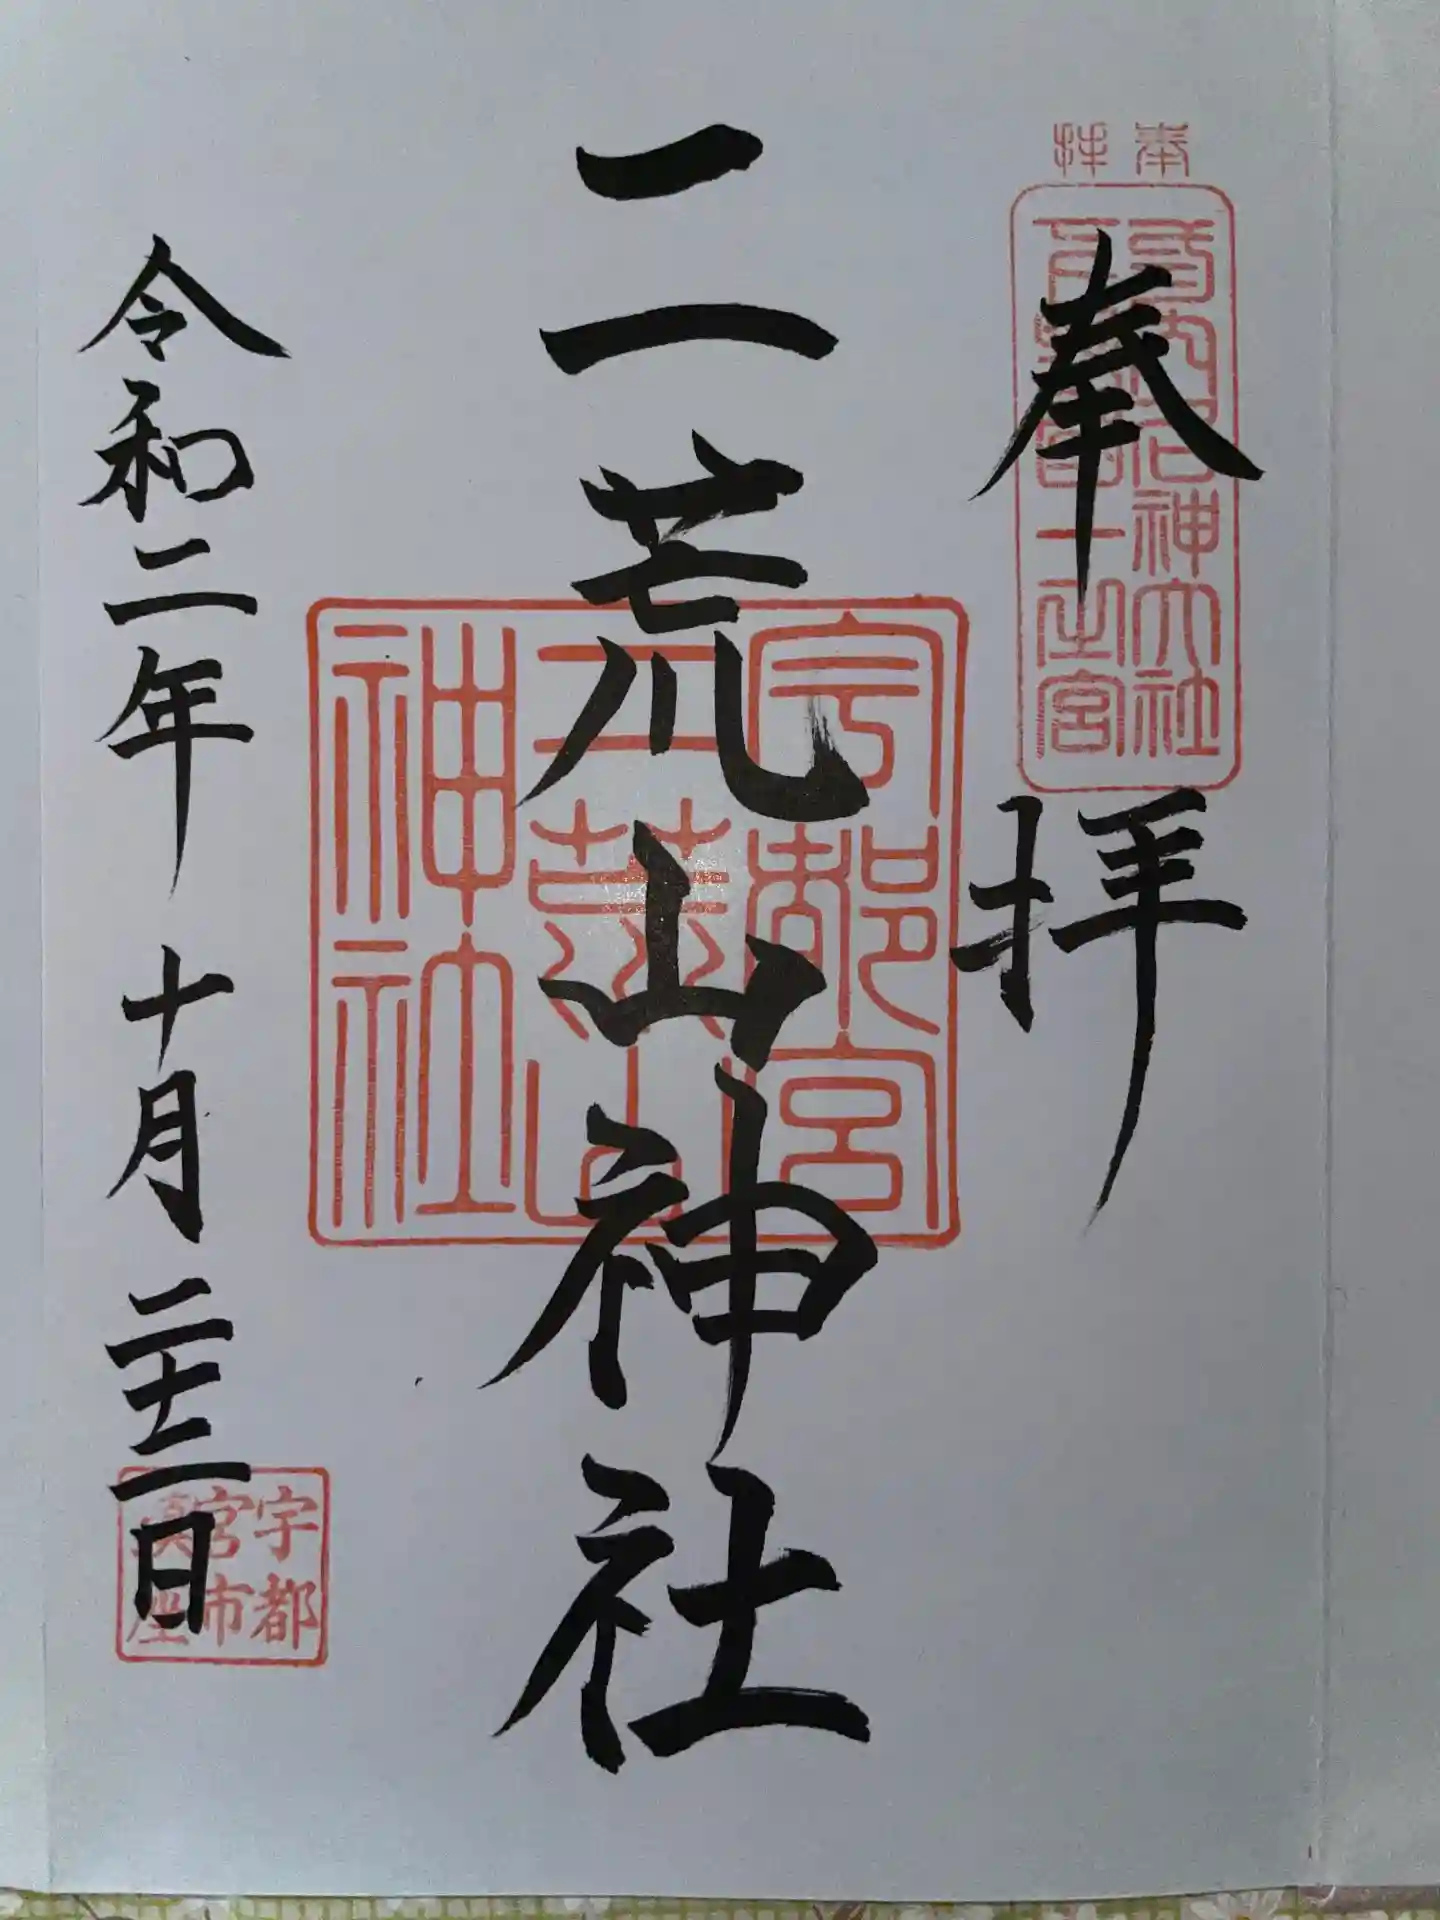 奉拝
式内名神大社
下野国一之宮
奉拝
二荒山神社
宇都宮
二荒山
神社
令和二年 十月 二十二日
宇都
宮市
鎮座